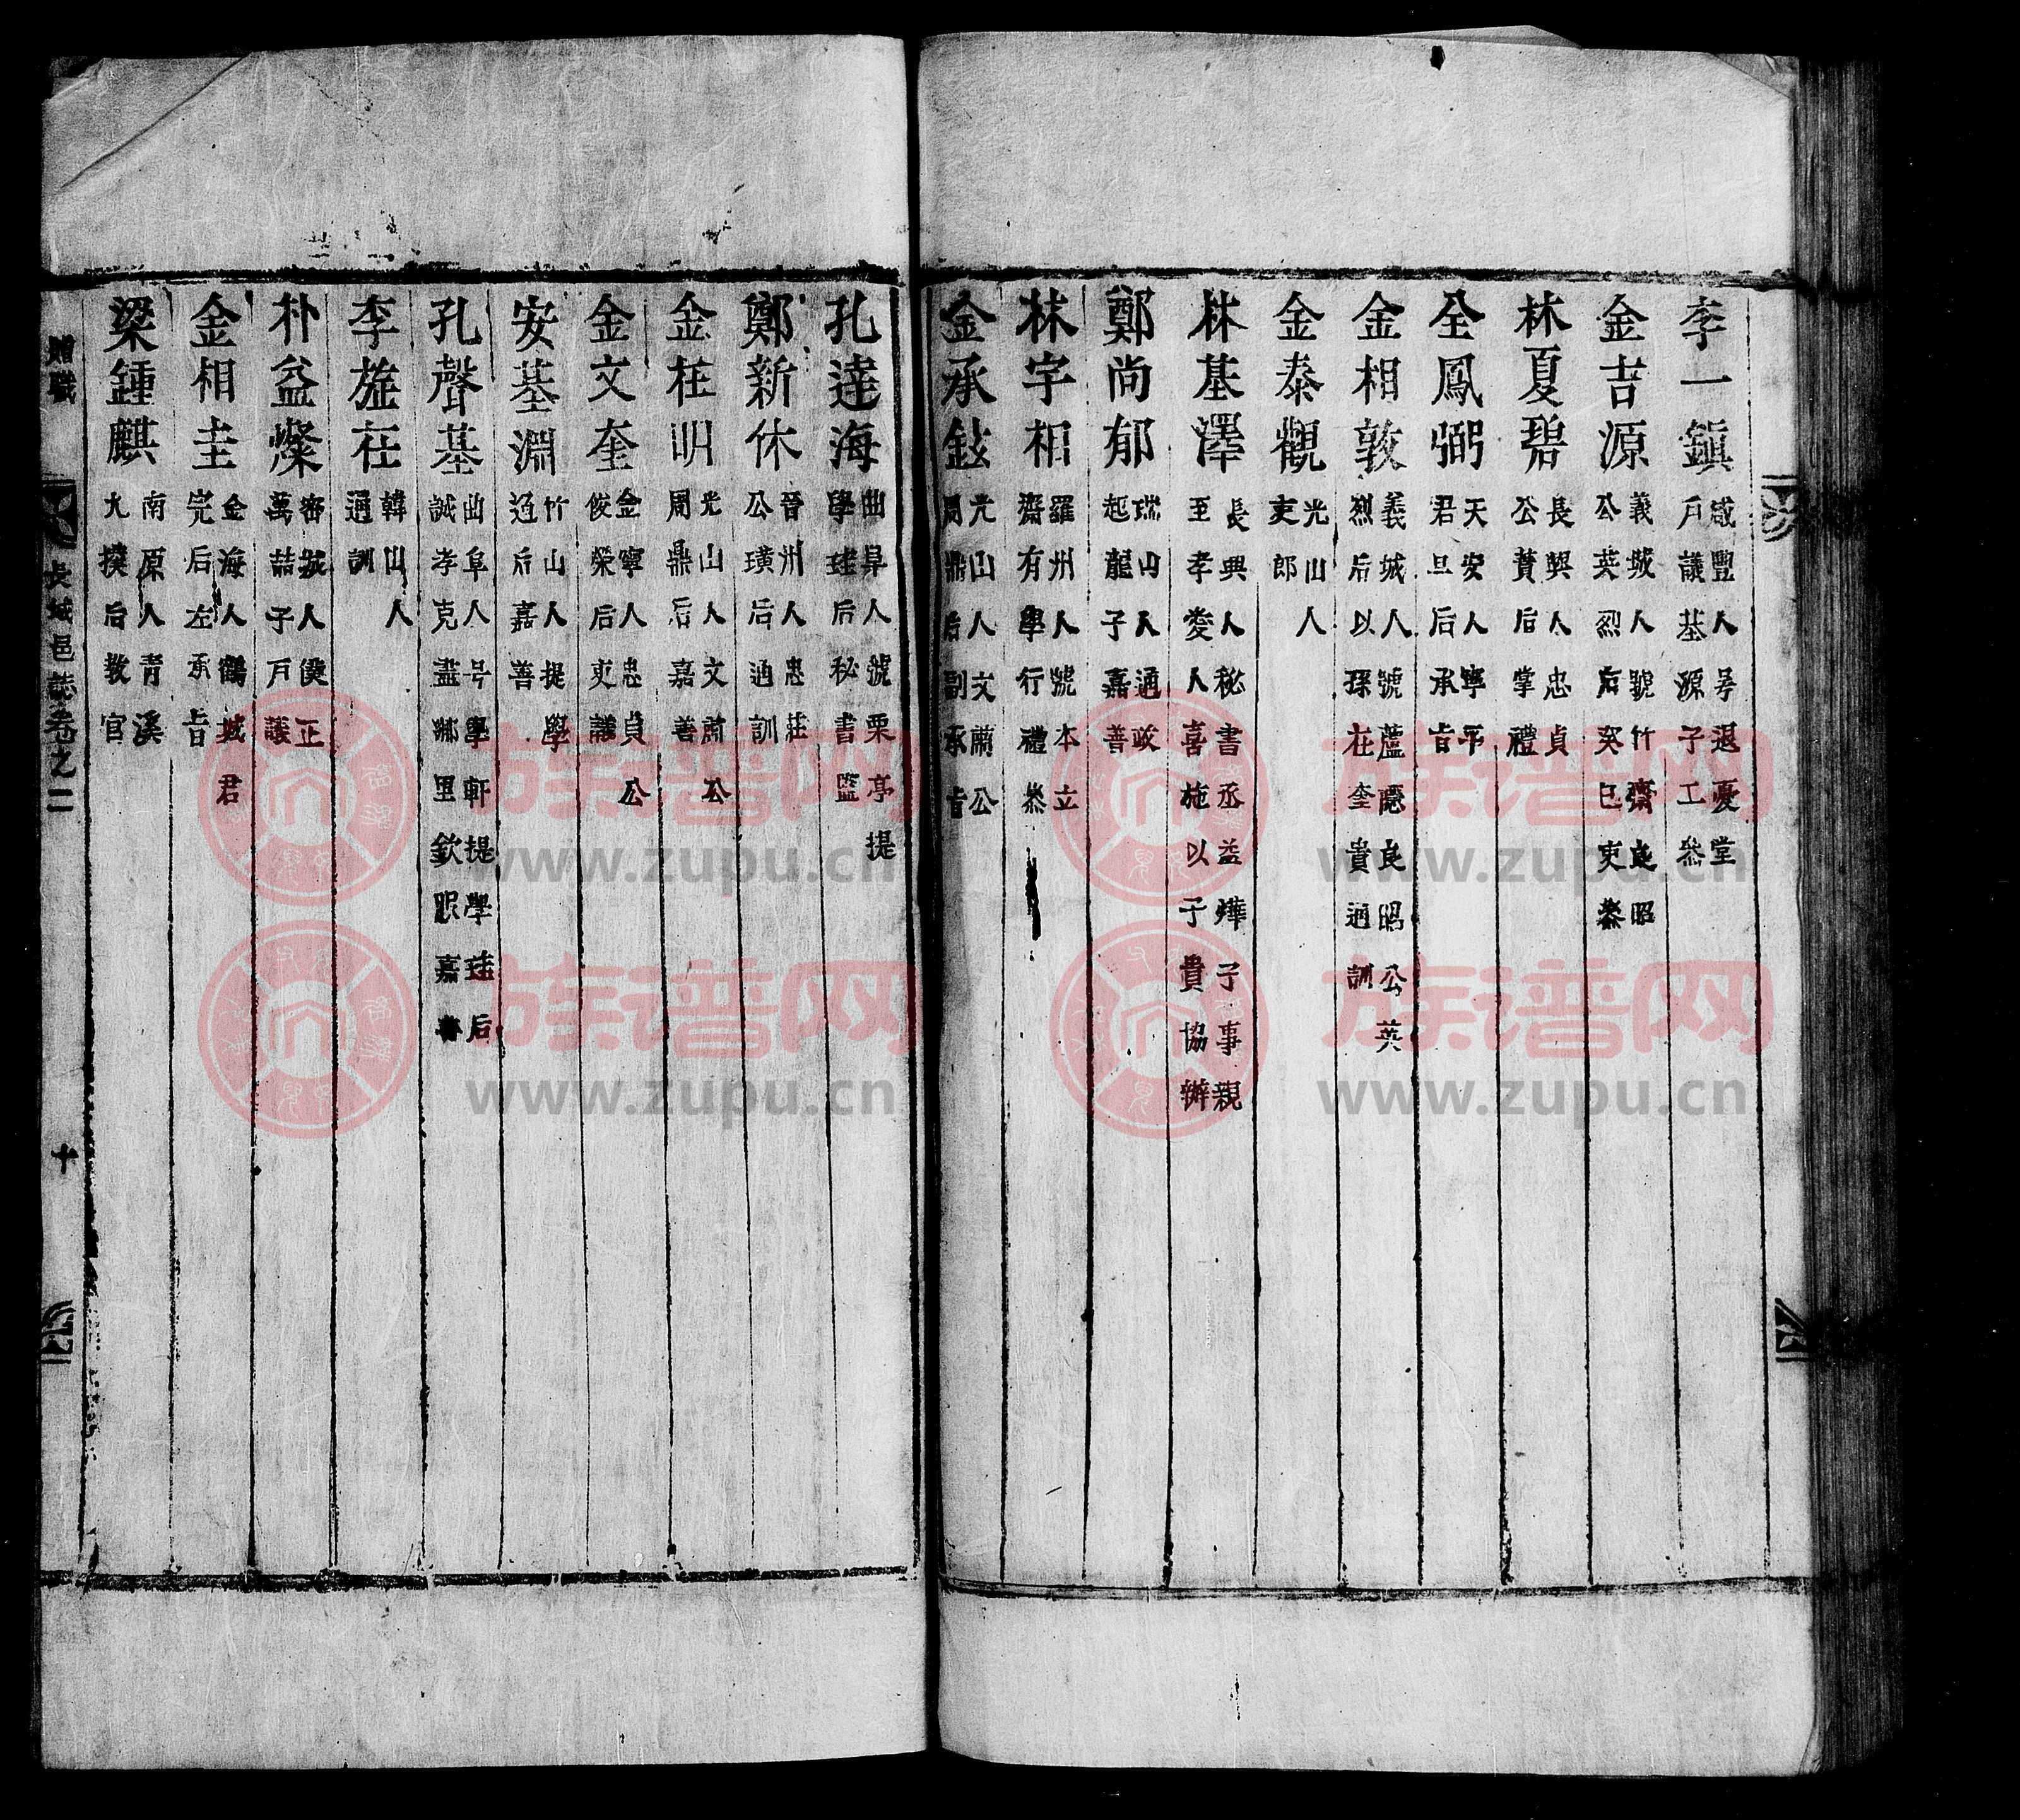 李一鎭 咸豐人号退憂堂戶議基源子工叅
金吉源 義城人號竹齋良昭公英烈后癸巳吏叅
林夏碧 長興人忠貞公蕡后掌禮
全鳳弼 天安人寧平君旦后承旨
金相敦 義城人號蘆隱良昭公英烈后以孫在奎貴通訓
金泰觀 光山人吏郎
林基澤 長興人秘書丞益燁子事親至孝愛人喜施以子貴協辦
鄭尚郁 瑞山人通政起龍子嘉善
林宇相 羅州人號本立齋有學行禮叅
金承鉉 光山人文肅公周鼎后副承旨
孔達海 曲阜人號栗亭提學珪后秘書監
鄭新休 晉州人忠莊公璜后通訓
金柱明 光山人文肅公周鼎后嘉善
金文奎 金寧人忠貞公俊榮后吏議
安基淵 竹山人提學通后嘉善
孔聲基 曲阜人号學軒提學珪后誠孝克盡鄉里欽服嘉善
李旌在 韓山人通訓
朴益燦 密城人僕正萬喆子戶議
金相圭 金海人鶴城君完后左承旨
梁鍾麒 南原人青溪大撲后教官
贈職
長城邑誌卷之二
十
族谱网
www.zupu.cn
族谱网
www.zupu.cn
族谱网
www.zupu.cn
族谱网
www.zupu.cn